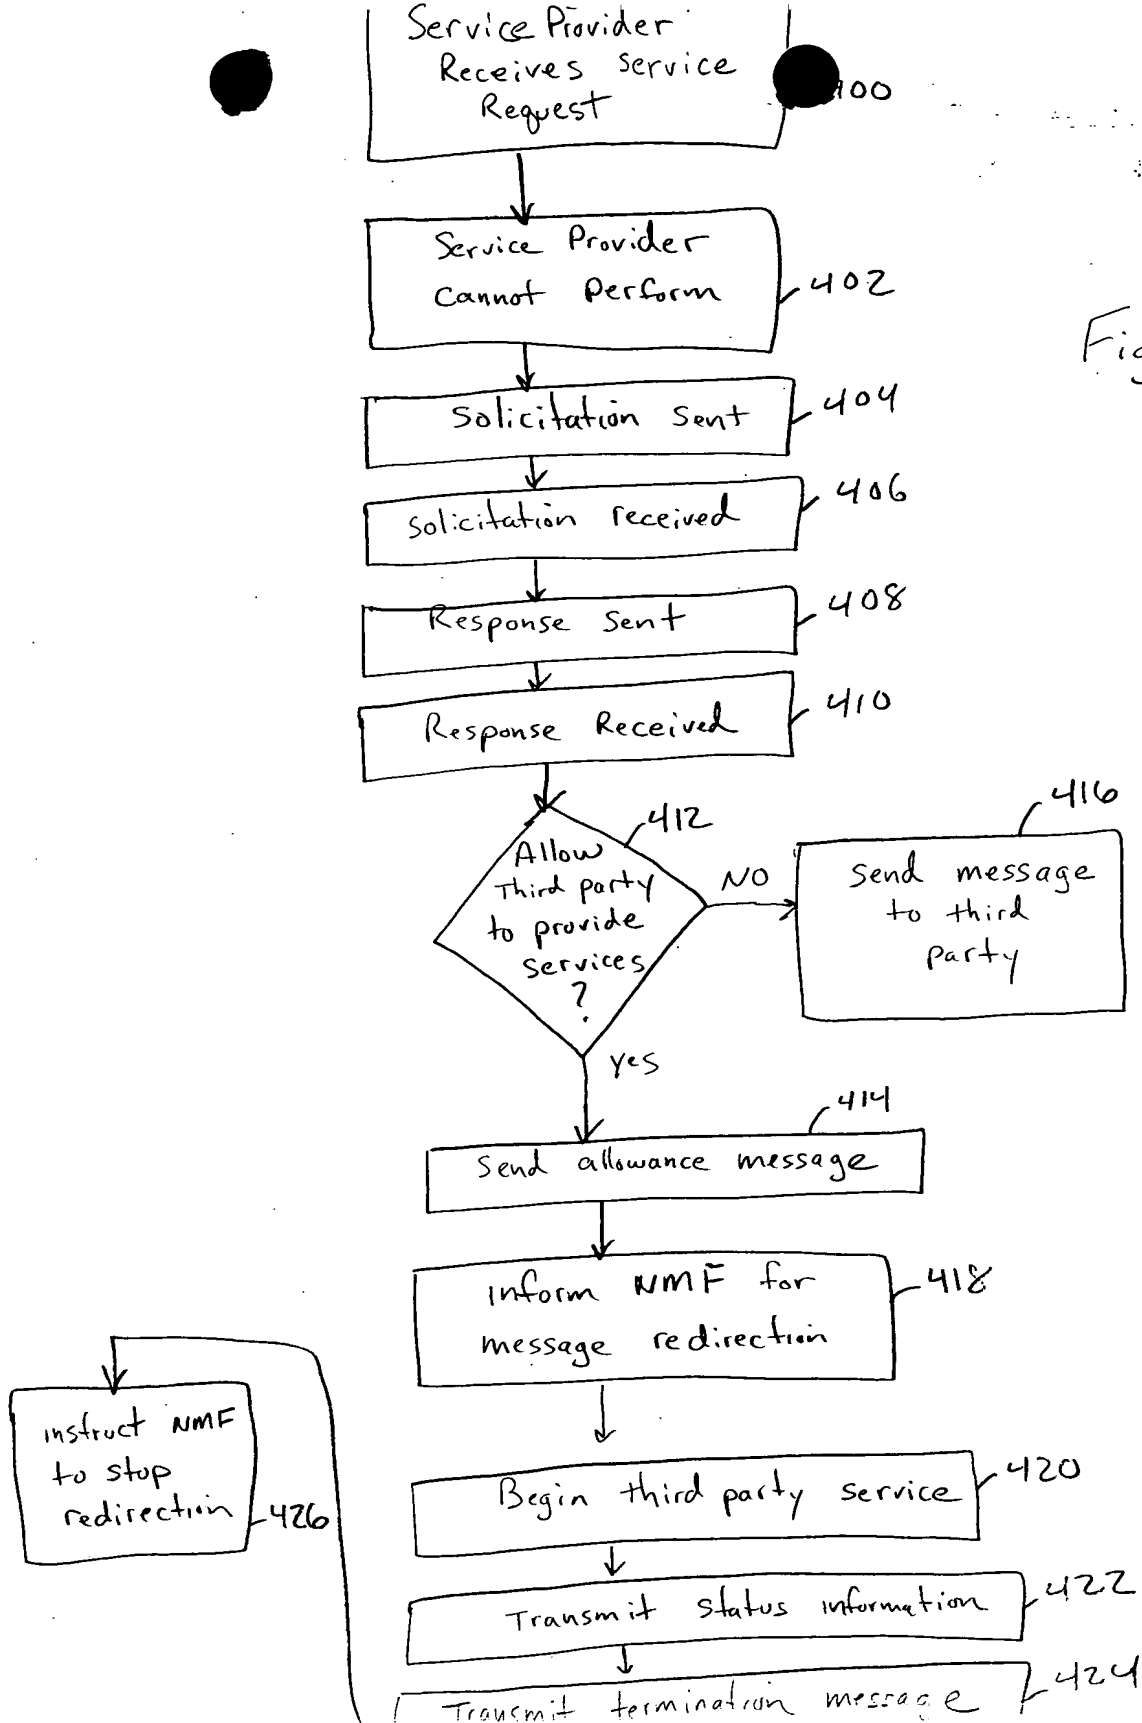 Service Provider
Receives Service
Request
400
Service Provider
Cannot Perform
402
Fig
Solicitation Sent
404
Solicitation received
406
Response Sent
408
Response Received
410
412
Allow
Third party
to provide
services
?
NO
416
Send message
to third
party
yes
414
Send allowance message
Inform NMF for
message redirection
418
instruct NMF
to stop
redirection
426
Begin third party service
420
Transmit status information
422
Transmit termination message
424